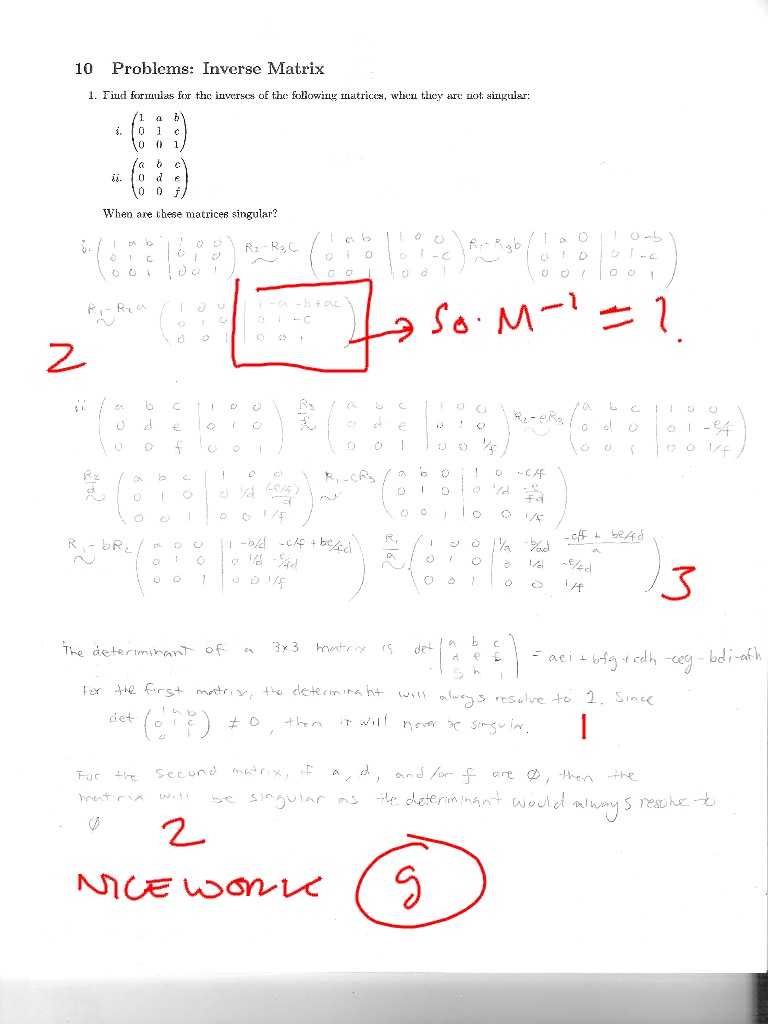 10 Problems: Inverse Matrix
1. Find formulas for the inverses of the following matrices, when they are not singular:
i. (1 a b
0 1 c
0 0 1)
ii. (a b c
0 d e
0 0 f)
When are these matrices singular?
i. (1 a b | 1 0 0 R2-R3C (1 a b | 1 0 0 R1-R3b (1 a 0 | 1 0 -b
0 1 c | 0 1 0 ~ 0 1 0 | 0 1 -c ~ 0 1 0 | 0 1 -c
0 0 1 | 0 0 1) 0 0 1 | 0 0 1) 0 0 1 | 0 0 1)
R1-R2a (1 0 0 | 1 -a -b+ac
~ 0 1 0 | 0 1 -c → So. M-1 = ?
0 0 1 | 0 0 1)
2
ii (a b c | 1 0 0 R3/f (a b c | 1 0 0 R2-eR3 (a b c | 1 0 0
0 d e | 0 1 0 ~ 0 d e | 0 1 0 ~ 0 d 0 | 0 1 -e/f
0 0 f | 0 0 1) 0 0 1 | 0 0 1/f) 0 0 1 | 0 0 1/f)
R2/d (a b c | 1 0 0 R1-CR3 (a b 0 | 1 0 -c/f
~ 0 1 0 | 0 1/d (-e/f)/d ~ 0 1 0 | 0 1/d -e/fd
0 0 1 | 0 0 1/f) 0 0 1 | 0 0 1/f)
R1-bR2 (a 0 0 | 1 -b/d -c/f + be/fd R1/a (1 0 0 | 1/a -b/ad (-c/f + be/fd)/a
~ 0 1 0 | 0 1/d -e/fd ~ 0 1 0 | 0 1/d -e/fd
0 0 1 | 0 0 1/f) 0 0 1 | 0 0 1/f)
3
The determinant of a 3x3 matrix is det (a b c
d e f
g h i) = aei + bfg + cdh - ceg - bdi - afh
For the first matrix, the determinant will always resolve to 1. Since
det (1 a b
0 1 c
0 0 1) ≠ 0, then it will never be singular.
1
For the second matrix, if a, d, and/or f are Ø, then the
matrix will be singular as the determinant would always resolve to
Ø
2
NICE WORK
9